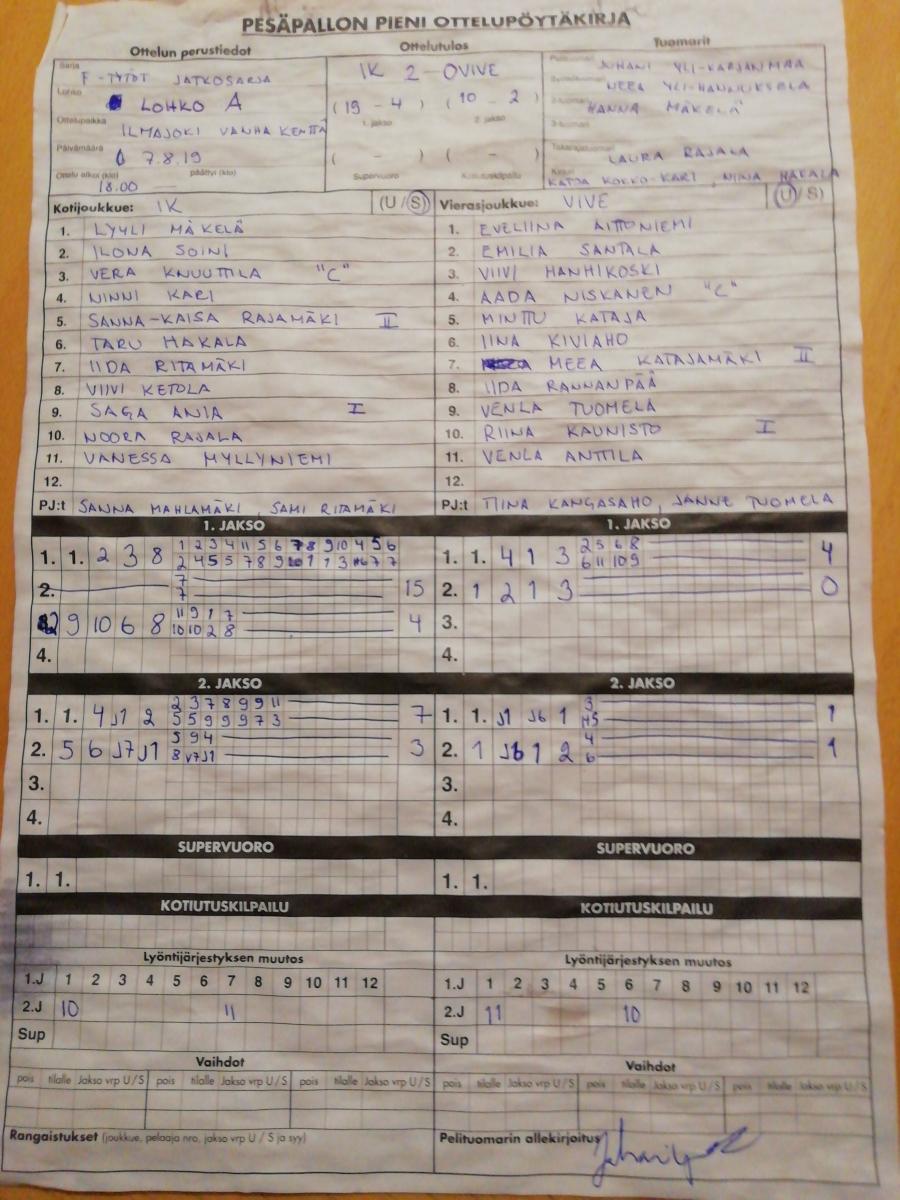 PESÄPALLON PIENI OTTELUPÖYTÄKIRJA
Ottelun perustiedot
Sarja
F-TYTÖT JATKOSARJA
Lohko
LOHKO A
Ottelupaikka
ILMAJOKI VANHA KENTTÄ
Päivämäärä
7.8.19
Ottelu alkoi (klo) päättyi (klo)
18.00
Ottelutulos
IK 2 - 0 VIVE
(19 - 4) (10 - 2)
1. jakso 2. jakso
( - ) ( - )
Supervuoro Kotiutuskilpailu
Tuomarit
JUHANI YLI-KARJANMAA
NEEA YLI-HANNUKSELA
HANNA MÄKELÄ
LAURA RAJALA
KATJA KOKKO-KARI, NINA HAKALA
Kotijoukkue: IK (U/S)
1. LYYLI MÄKELÄ
2. ILONA SOINI
3. VERA KNUUTTILA "C"
4. NINNI KARI
5. SANNA-KAISA RAJAMÄKI II
6. TARU HAKALA
7. IIDA RITAMÄKI
8. VIIVI KETOLA
9. SAGA ANIA I
10. NOORA RAJALA
11. VANESSA MYLLYNIEMI
12.
PJ:t SANNA MAHLAMÄKI, SAMI RITAMÄKI
Vierasjoukkue: VIVE (U/S)
1. EVELIINA AITTONIEMI
2. EMILIA SANTALA
3. VIIVI HANHIKOSKI
4. AADA NISKANEN "C"
5. MINTTU KATAJA
6. IINA KIVIAHO
7. MEEA KATAJAMÄKI II
8. IIDA RANNANPÄÄ
9. VENLA TUOMELA
10. RIINA KAUNISTO I
11. VENLA ANTTILA
12.
PJ:t TIINA KANGASAHO, JANNE TUOMELA
1. JAKSO
1. 1. 2 3 8 1 2 3 4 11 5 6 7 8 9 10 4 5 6
2 4 5 5 7 8 9 10 1 1 3 7 7
2. 7
7 15
9 10 6 8 11 9 1 7
10 10 2 8 4
4.
1. JAKSO
1. 1. 4 1 3 2 5 6 8
6 11 10 9 4
2. 1 2 1 3 0
3.
4.
2. JAKSO
1. 1. 4 J1 2 2 3 7 8 9 9 11
5 5 9 9 9 7 3 7
2. 5 6 J7 J1 5 9 4
8 V7 J1 3
3.
4.
2. JAKSO
1. 1. J1 J6 1 3
1
2. 1 J6 1 2 4
6 1
3.
4.
SUPERVUORO
1. 1.
SUPERVUORO
1. 1.
KOTIUTUSKILPAILU
KOTIUTUSKILPAILU
Lyöntijärjestyksen muutos
1.J 1 2 3 4 5 6 7 8 9 10 11 12
2.J 10 11
Sup
Lyöntijärjestyksen muutos
1.J 1 2 3 4 5 6 7 8 9 10 11 12
2.J 11 10
Sup
Vaihdot
pois tilalle Jakso vrp U/S pois tilalle Jakso vrp U/S pois tilalle Jakso vrp U/S
Vaihdot
pois tilalle Jakso vrp U/S pois tilalle Jakso vrp U/S pois tilalle Jakso vrp U/S
Rangaistukset (joukkue, pelaaja nro, jakso vrp U / S ja syy)
Pelituomarin allekirjoitus